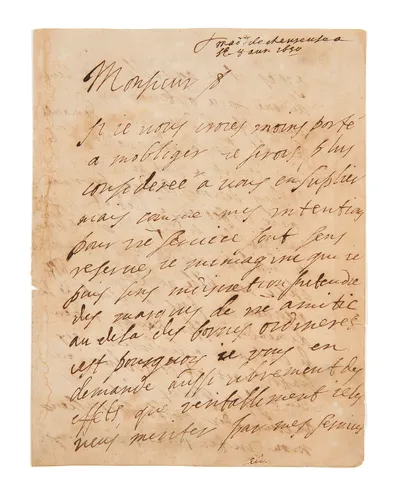 mad.e de chevreuse a
le 8 avr 1650
Monsieur
si je vous croiés moins porté
a mobliger je serois plus
considereé a vous en suplier
mais comme mes intention
pour ve service sont sens
reserve, je mimagine que je
puis sens indiscretion pretendre
des marques de ve amitié
au dela des bornes ordineres
cest pourquoy je vous en
demande aussi librement des
effets, que veritablement je les
veus meriter par mes